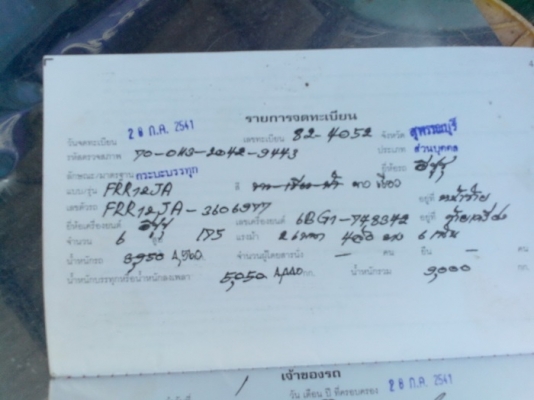 4
รายการจดทะเบียน
วันจดทะเบียน 28 ก.ค. 2541 เลขทะเบียน 82-4052 จังหวัด สุพรรณบุรี
รหัสตรวจสภาพ 70-043-2042-9443 ประเภท ส่วนบุคคล
ลักษณะ/มาตรฐาน กระบะบรรทุก ยี่ห้อรถ อีซูซุ
แบบ/รุ่น FRR12JA สี
เลขตัวรถ FRR12JA-3606977 อยู่ที่
ยี่ห้อเครื่องยนต์ อีซูซุ เลขเครื่องยนต์ 6BG1-778342 อยู่ที่
จำนวน 6 สูบ 175 แรงม้า 2 เพลา 4 ล้อ ยาง 6 เส้น
น้ำหนักรถ 3,950 4,560 จำนวนผู้โดยสารนั่ง - คน ยืน - คน
น้ำหนักบรรทุกหรือน้ำหนักลงเพลา 5,050 4,440 กก. น้ำหนักรวม 9,000 กก.
เจ้าของรถ
วัน เดือน ปี ที่ครอบครอง 28 ก.ค. 2541